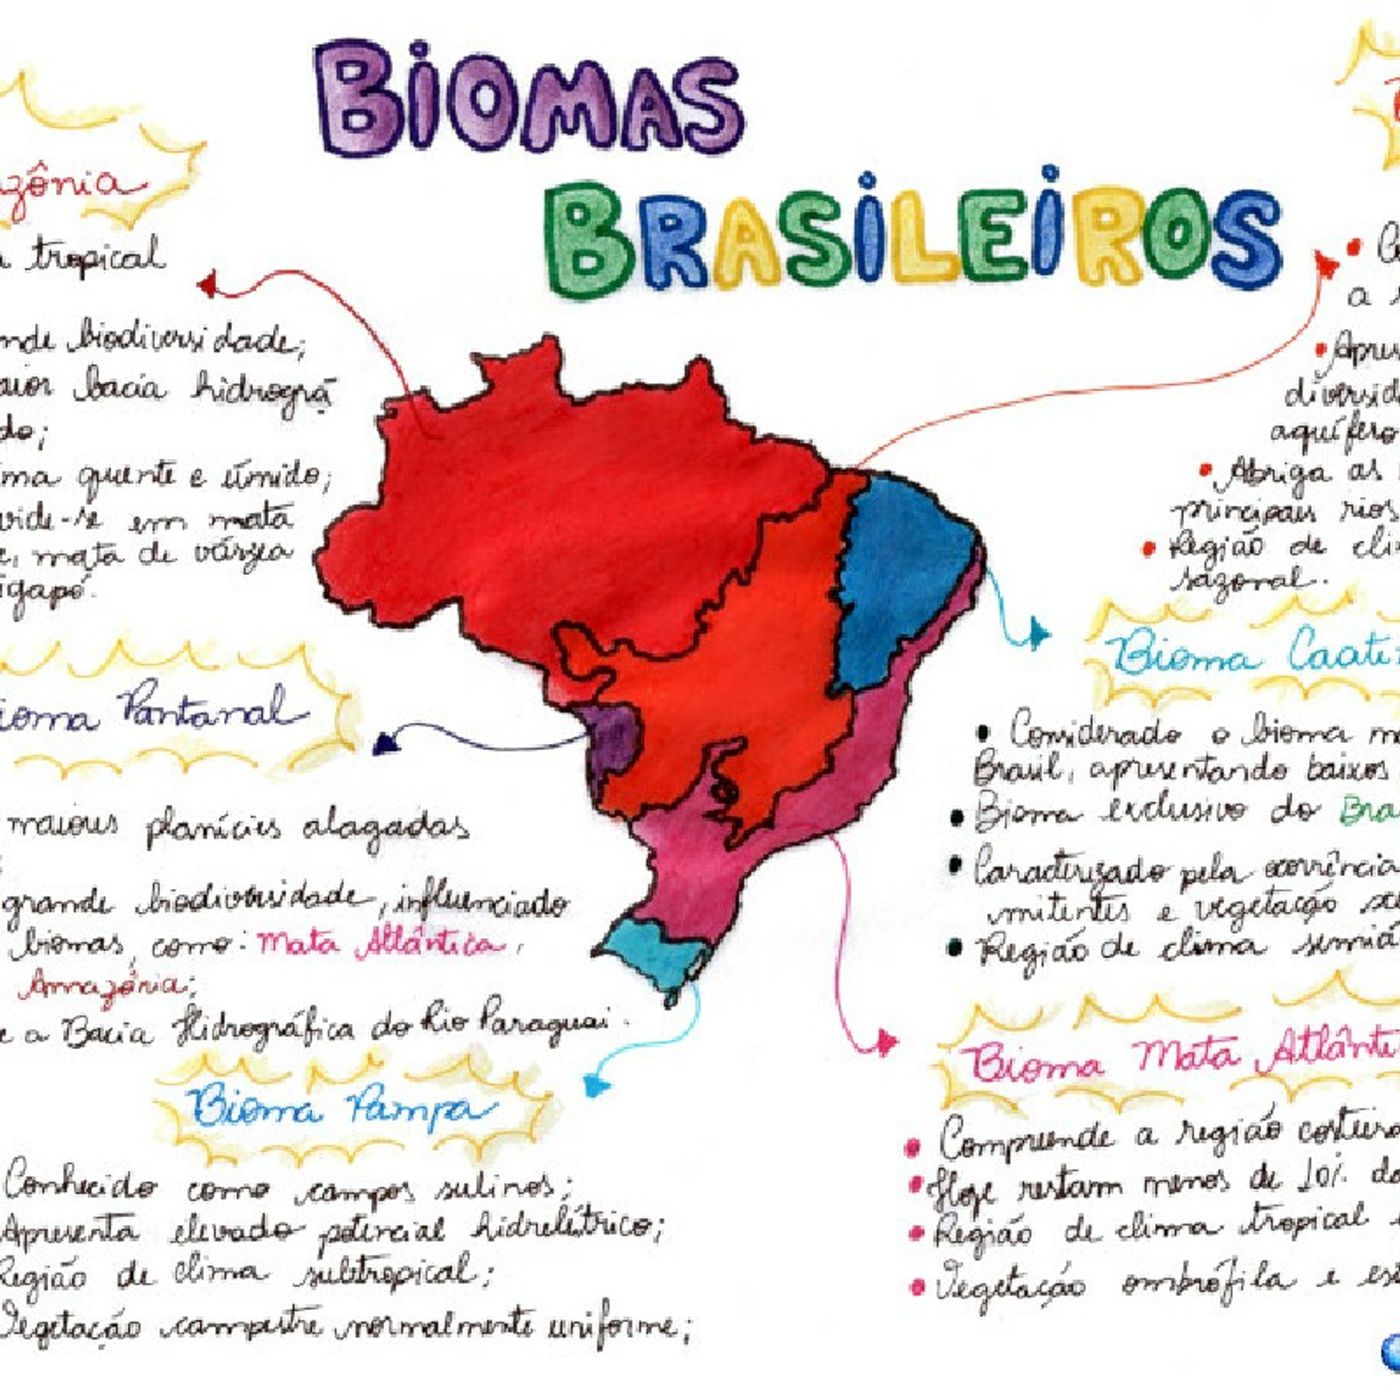 BIOMAS
BRASILEIROS
zônia
a tropical
nde biodiversidade;
aior bacia hidrográ
do;
ima quente e úmido;
vide-se em mata
e, mata de várzea
igapó.
ioma Pantanal
maiores planícies alagadas
grande biodiversidade, influenciado
biomas, como: Mata Atlântica,
Amazônia;
e a Bacia Hidrográfica do Rio Paraguai.
Bioma Pampa
Conhecido como campos sulinos;
Apresenta elevado potencial hidrelétrico;
Região de clima subtropical;
Vegetação campestre normalmente uniforme;
a s
Apres
diversid
aquífero
Abriga as
principais rios
Região de cli
sazonal.
Bioma Caati
Considerado o bioma m
Brasil, apresentando baixos
Bioma exclusivo do Bra
Caracterizado pela ocorrência
mitentes e vegetação
Região de clima semiá
Bioma Mata Atlânti
Compreende a região costeira
Hoje restam menos de 10% do
Região de clima tropical
Vegetação ombrófila e es